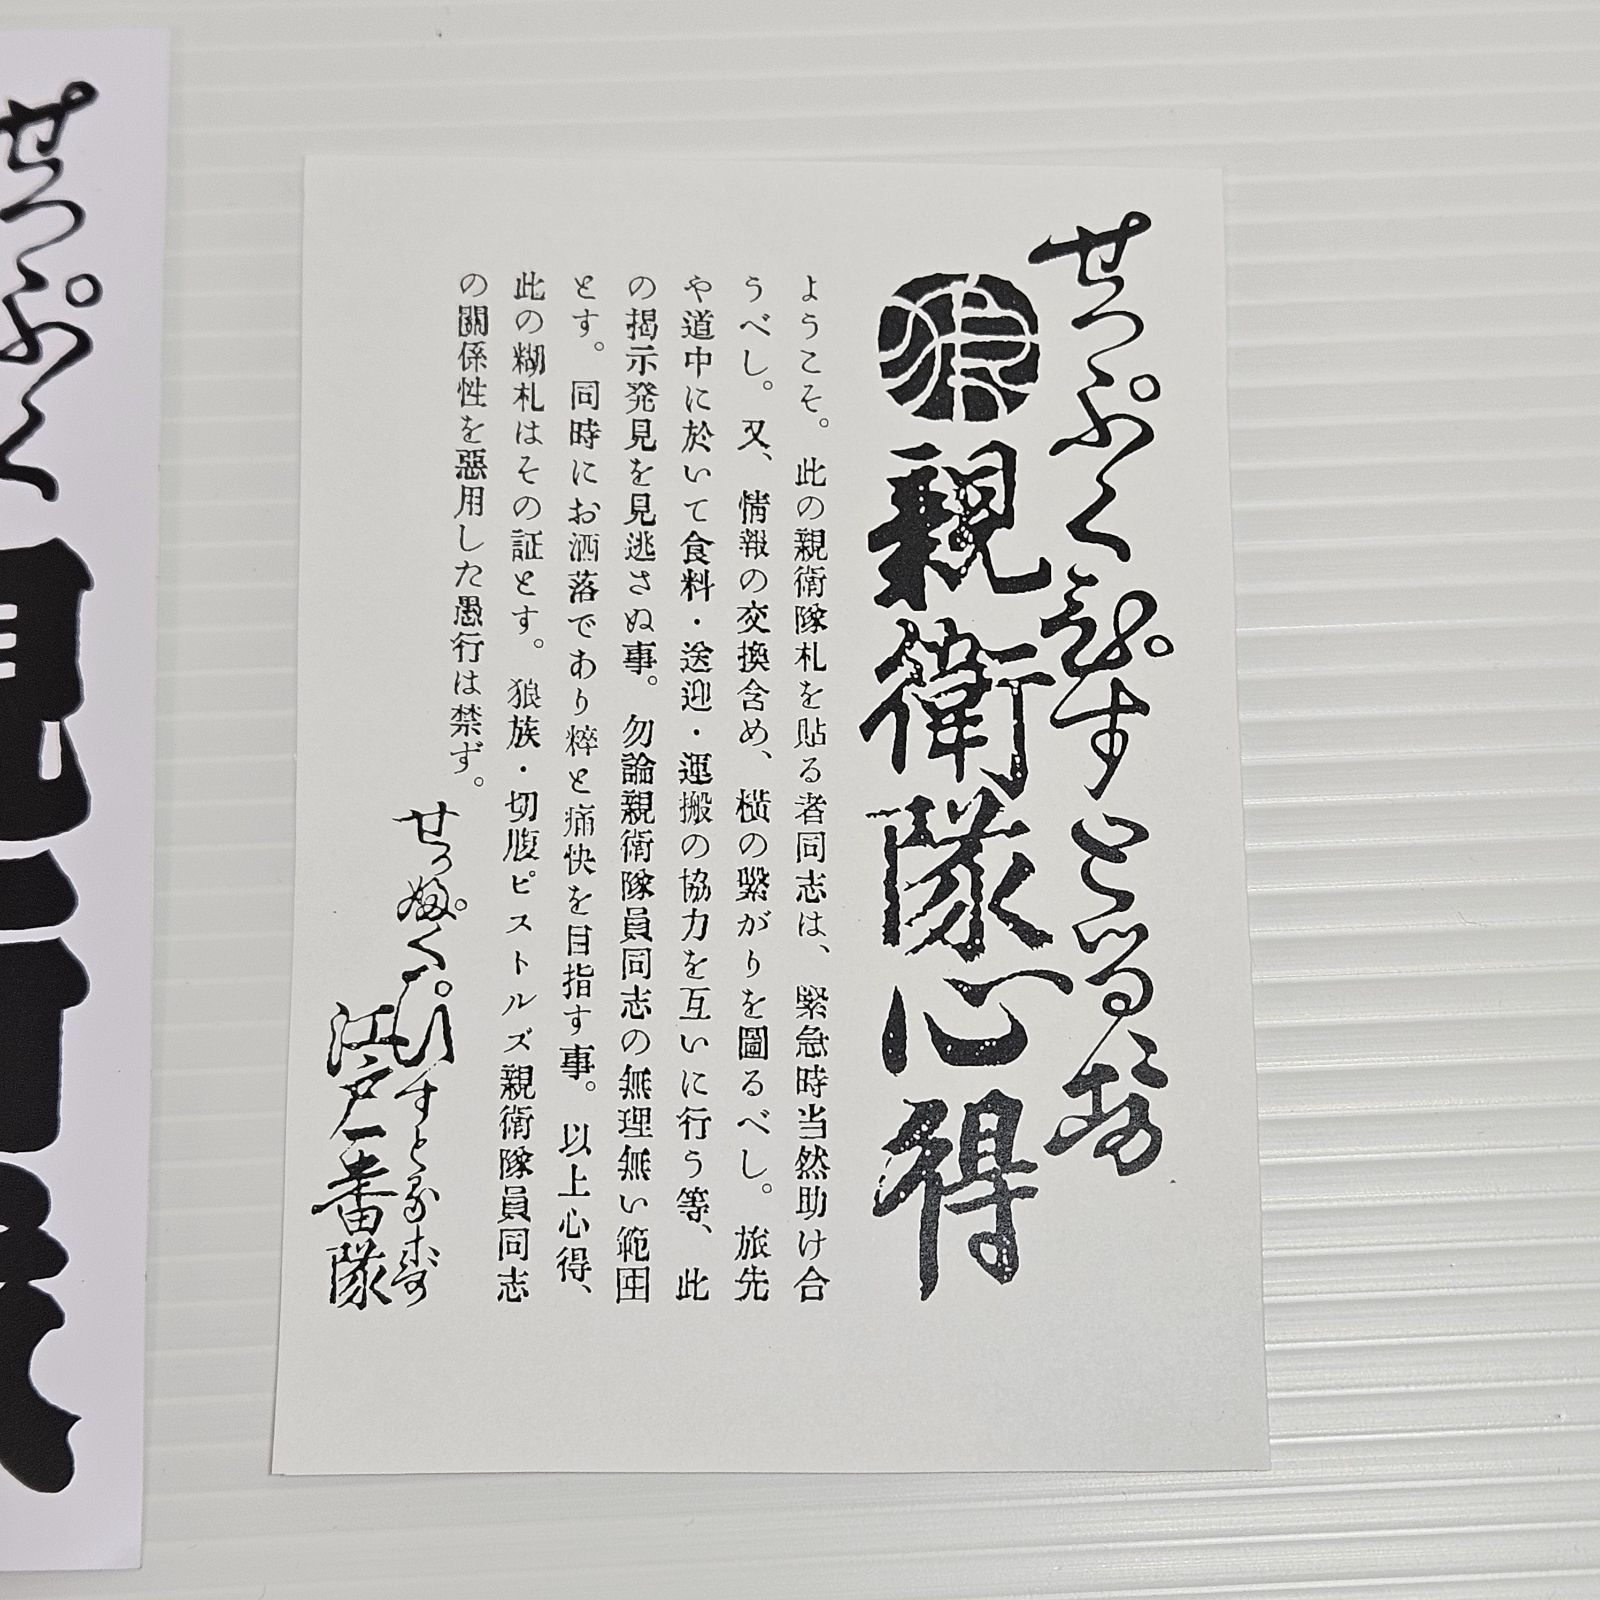 せっぷくぴすとるず
狼
親衛隊心得
ようこそ。此の親衛隊札を貼る者同志は、緊急時当然助け合
うべし。又、情報の交換含め、横の繋がりを圖るべし。旅先
や道中に於いて食料・送迎・運搬の協力を互いに行う等、此
の掲示発見を見逃さぬ事。勿論親衛隊員同志の無理無い範囲
とす。同時にお洒落であり粹と痛快を目指す事。以上心得、
此の糊札はその証とす。狼族・切腹ピストルズ親衛隊員同志
の關係性を惡用した愚行は禁ず。
せっぷくぴすとるず
江戸一番隊
せっぷく